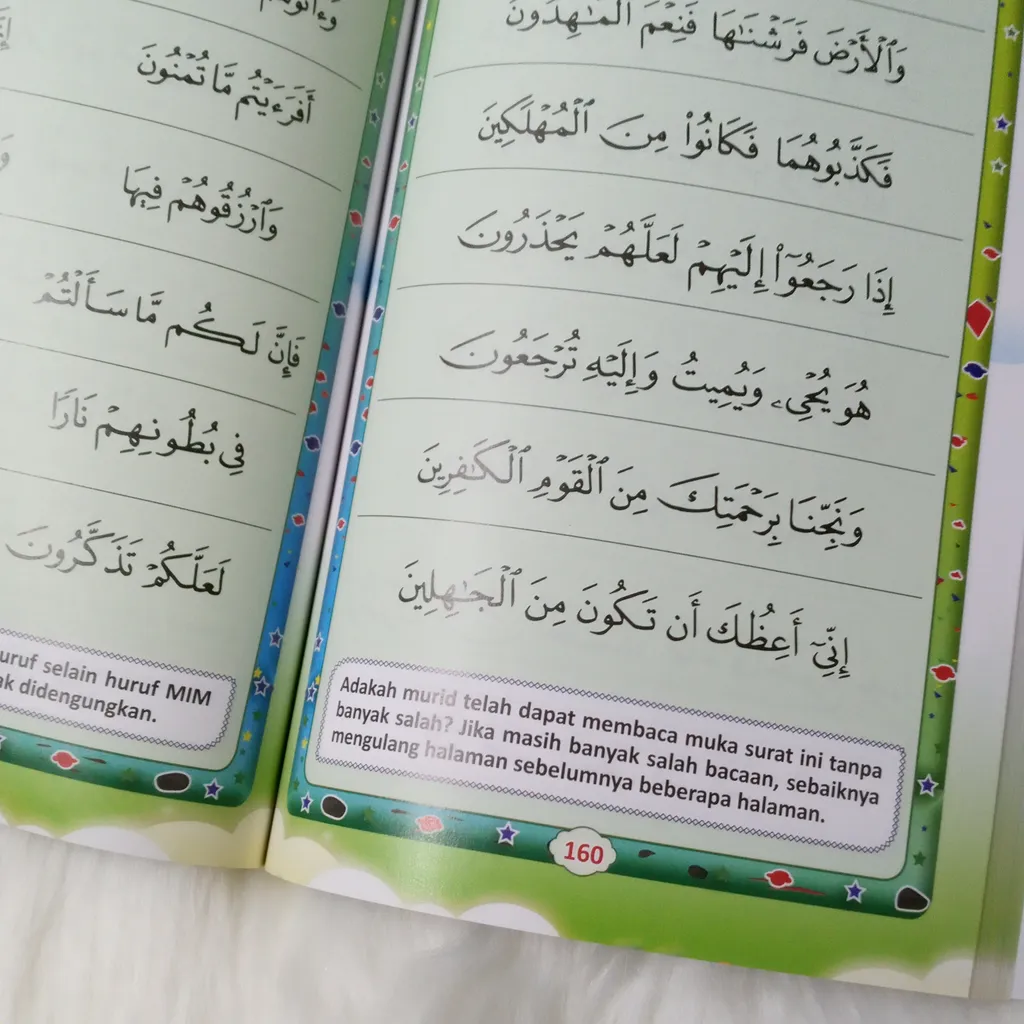 وَٱلْأَرْضَ فَرَشْنَٰهَا فَنِعْمَ ٱلْمَٰهِدُونَ
فَكَذَّبُوهُمَا فَكَانُوا۟ مِنَ ٱلْمُهْلَكِينَ
إِذَا رَجَعُوٓا۟ إِلَيْهِمْ لَعَلَّهُمْ يَحْذَرُونَ
هُوَ يُحْىِۦ وَيُمِيتُ وَإِلَيْهِ تُرْجَعُونَ
وَنَجِّنَا بِرَحْمَتِكَ مِنَ ٱلْقَوْمِ ٱلْكَٰفِرِينَ
إِنِّىٓ أَعِظُكَ أَن تَكُونَ مِنَ ٱلْجَٰهِلِينَ
Adakah murid telah dapat membaca muka surat ini tanpa
banyak salah? Jika masih banyak salah bacaan, sebaiknya
mengulang halaman sebelumnya beberapa halaman.
160
أَفَرَءَيْتُم مَّا تُمْنُونَ
وَٱرْزُقُوهُمْ فِيهَا
فَإِنَّ لَكُم مَّا سَأَلْتُمْ
فِى بُطُونِهِمْ نَارًا
لَعَلَّكُمْ تَذَكَّرُونَ
uruf selain huruf MIM
ak didengungkan.